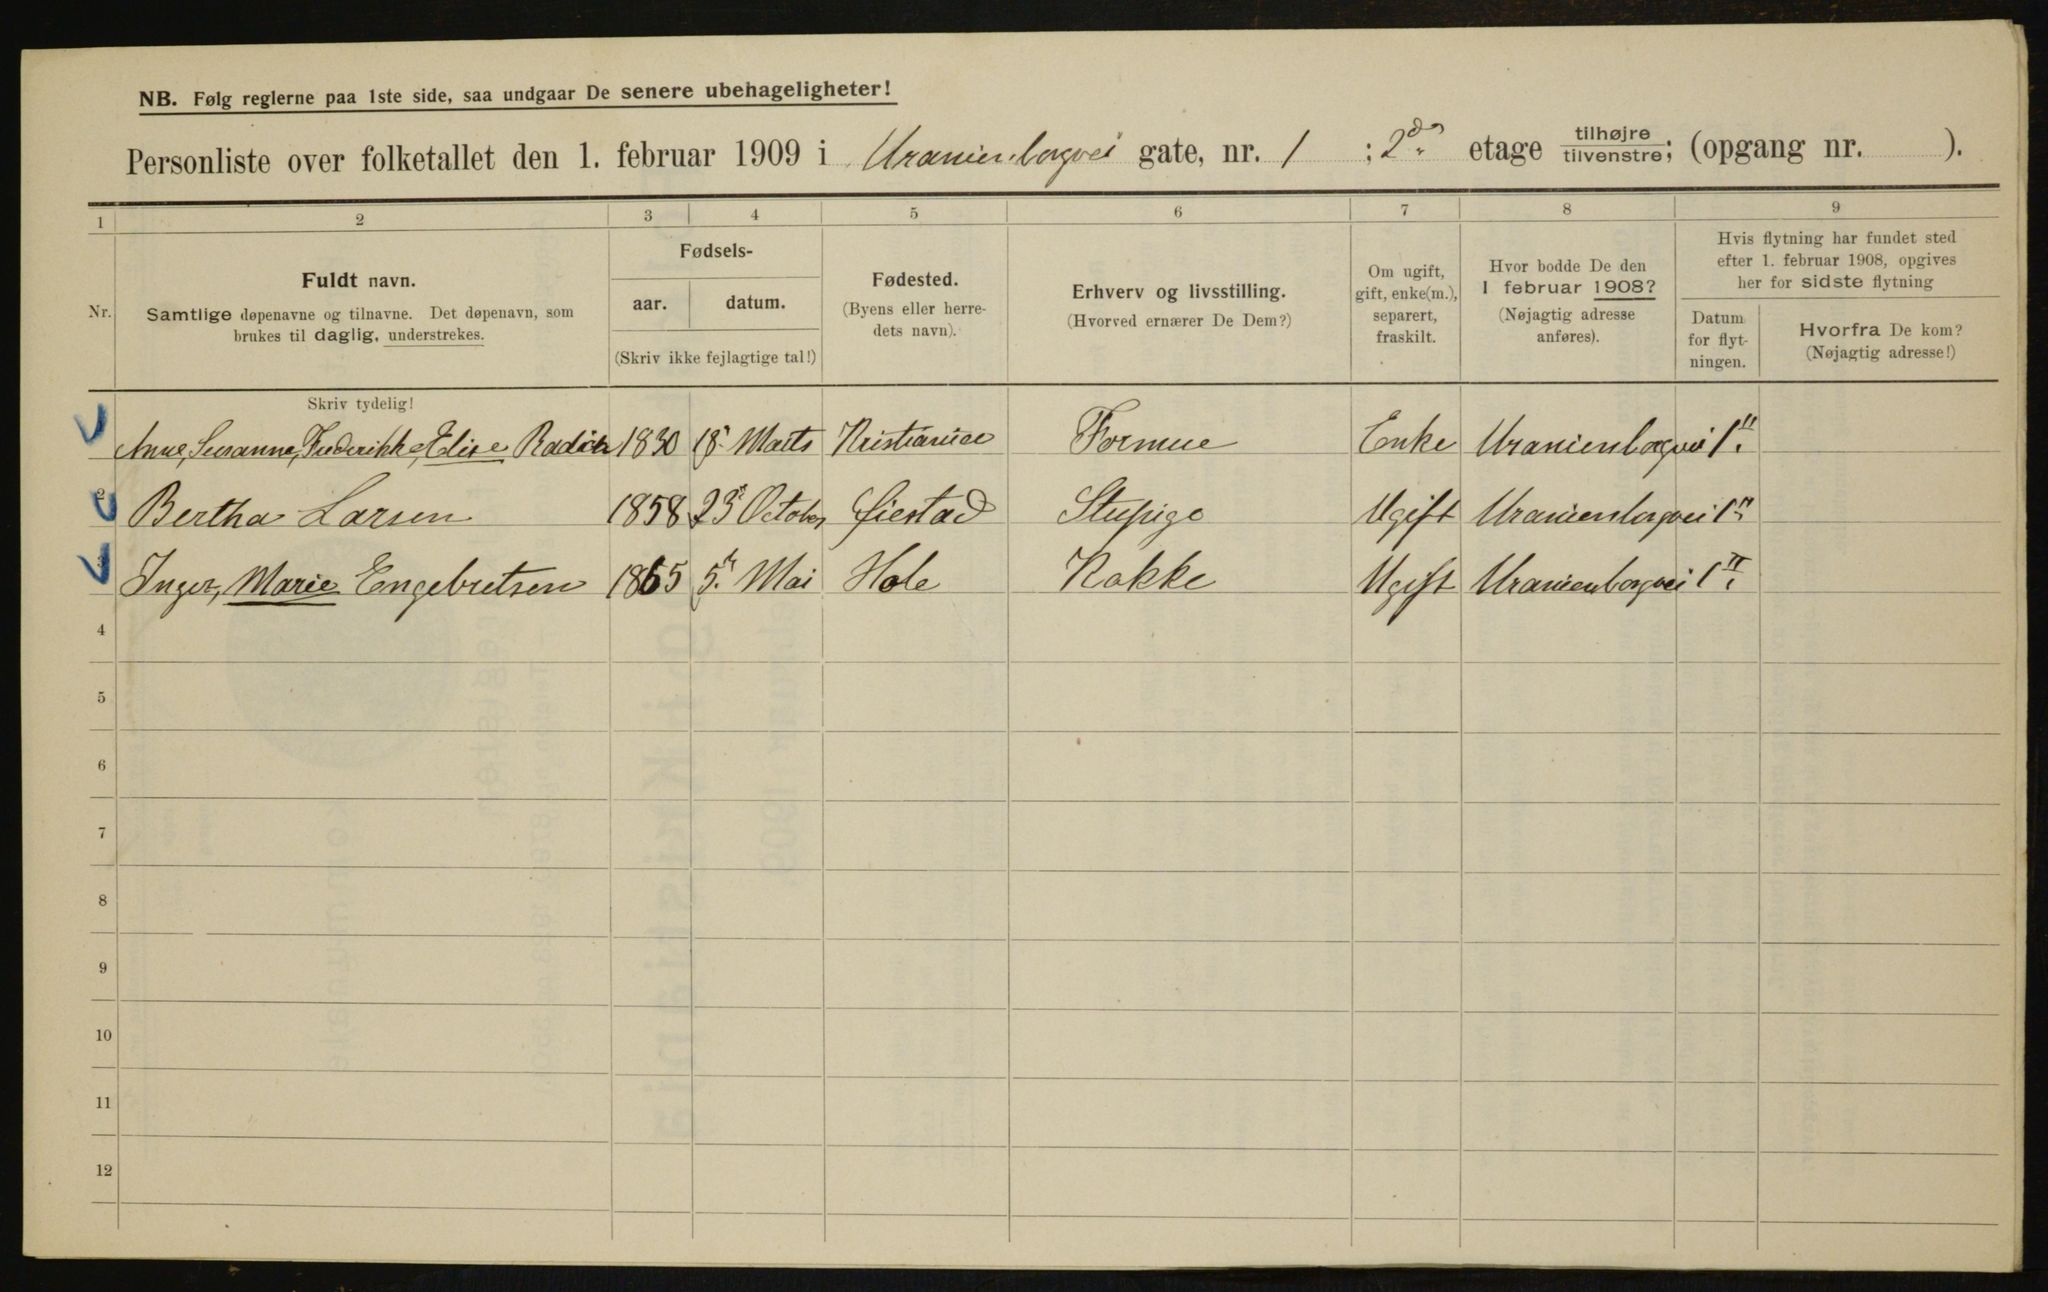 NB. Følg reglerne paa 1ste side, saa undgaar De senere ubehageligheter!
Personliste over folketallet den 1. februar 1909 i Uranienborgvei gate, nr. 1 ; 2den etage tilhøjre/tilvenstre; (opgang nr. ).
1 2 3 4 5 6 7 8 9
Nr.
Fuldt navn.
Samtlige døpenavne og tilnavne. Det døpenavn, som
brukes til daglig, understrekes.
Fødsels-
aar. datum.
(Skriv ikke fejlagtige tal!)
Fødested.
(Byens eller herre-
dets navn).
Erhverv og livsstilling.
(Hvorved ernærer De Dem?)
Om ugift,
gift, enke(m.),
separert,
fraskilt.
Hvor bodde De den
1 februar 1908?
(Nøjagtig adresse
anføres).
Hvis flytning har fundet sted
efter 1. februar 1908, opgives
her for sidste flytning
Datum
for flyt-
ningen.
Hvorfra De kom?
(Nøjagtig adresse!)
Skriv tydelig!
Anne, Susanne, Frederikke, Elise Radich 1830 18. Marts Kristiania Formue Enke Uranienborgvei 1 II.
2 Bertha Larsen 1858 23 October Øiestad Stupige Ugift Uranienborgvei 1
3 Inger, Marie Engebretsen 1865 5. Mai Hole Kokke Ugift Uranienborgvei 1 II.
4
5
6
7
8
9
10
11
12